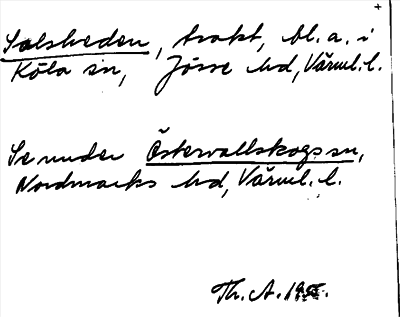 +
Salsheden, trakt, bl. a. i
Köla sn, Jösse hd, Värml. l.
Se under Östervallskogs sn,
Nordmarks hd, Värml. l.
Th. A. 19